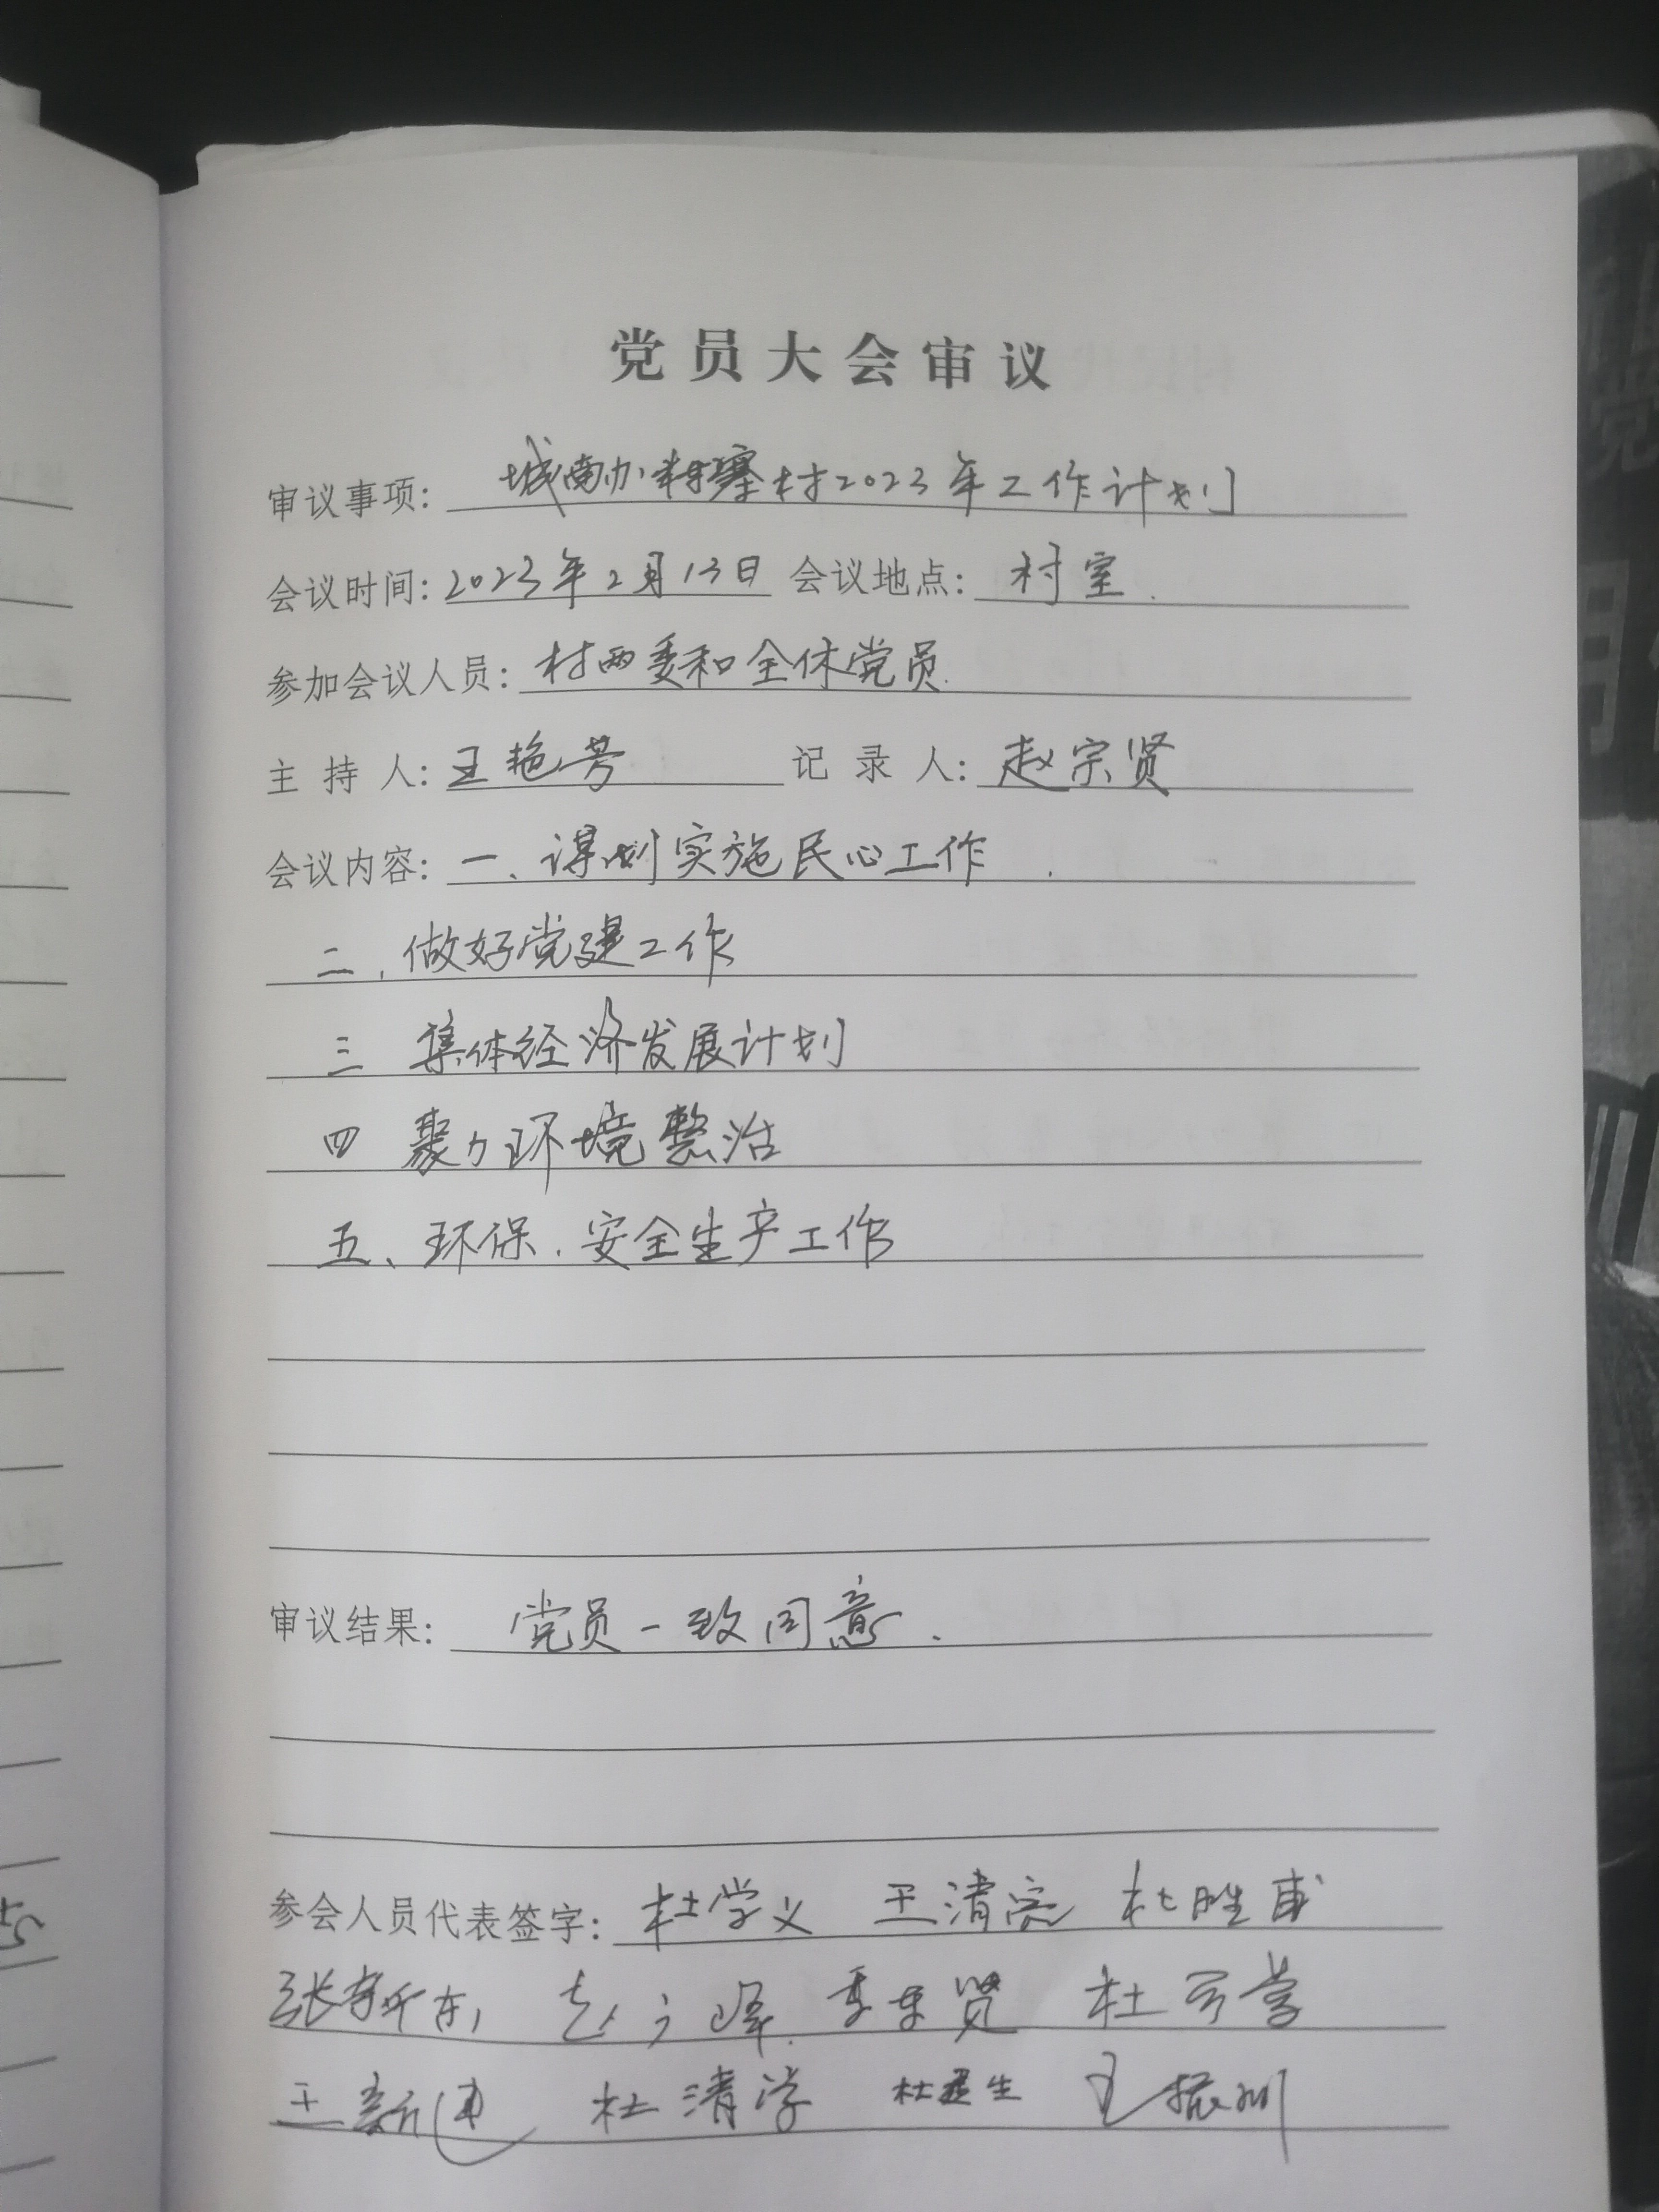 党员大会审议
审议事项：城南办寨村2023年工作计划
会议时间：2023年2月13日 会议地点：村室.
参加会议人员：村两委和全体党员.
主持人：王艳芳 记录人：赵宗贤
会议内容：一、谋划实施民心工作
二、做好党建工作
三 集体经济发展计划
四 聚力环境整治
五、环保.安全生产工作
审议结果：党员一致同意.
参会人员代表签字：杜学义 王清亮 杜胜甫
张新东 赵 贤 杜学
王新建 杜清学 杜 生 王振川